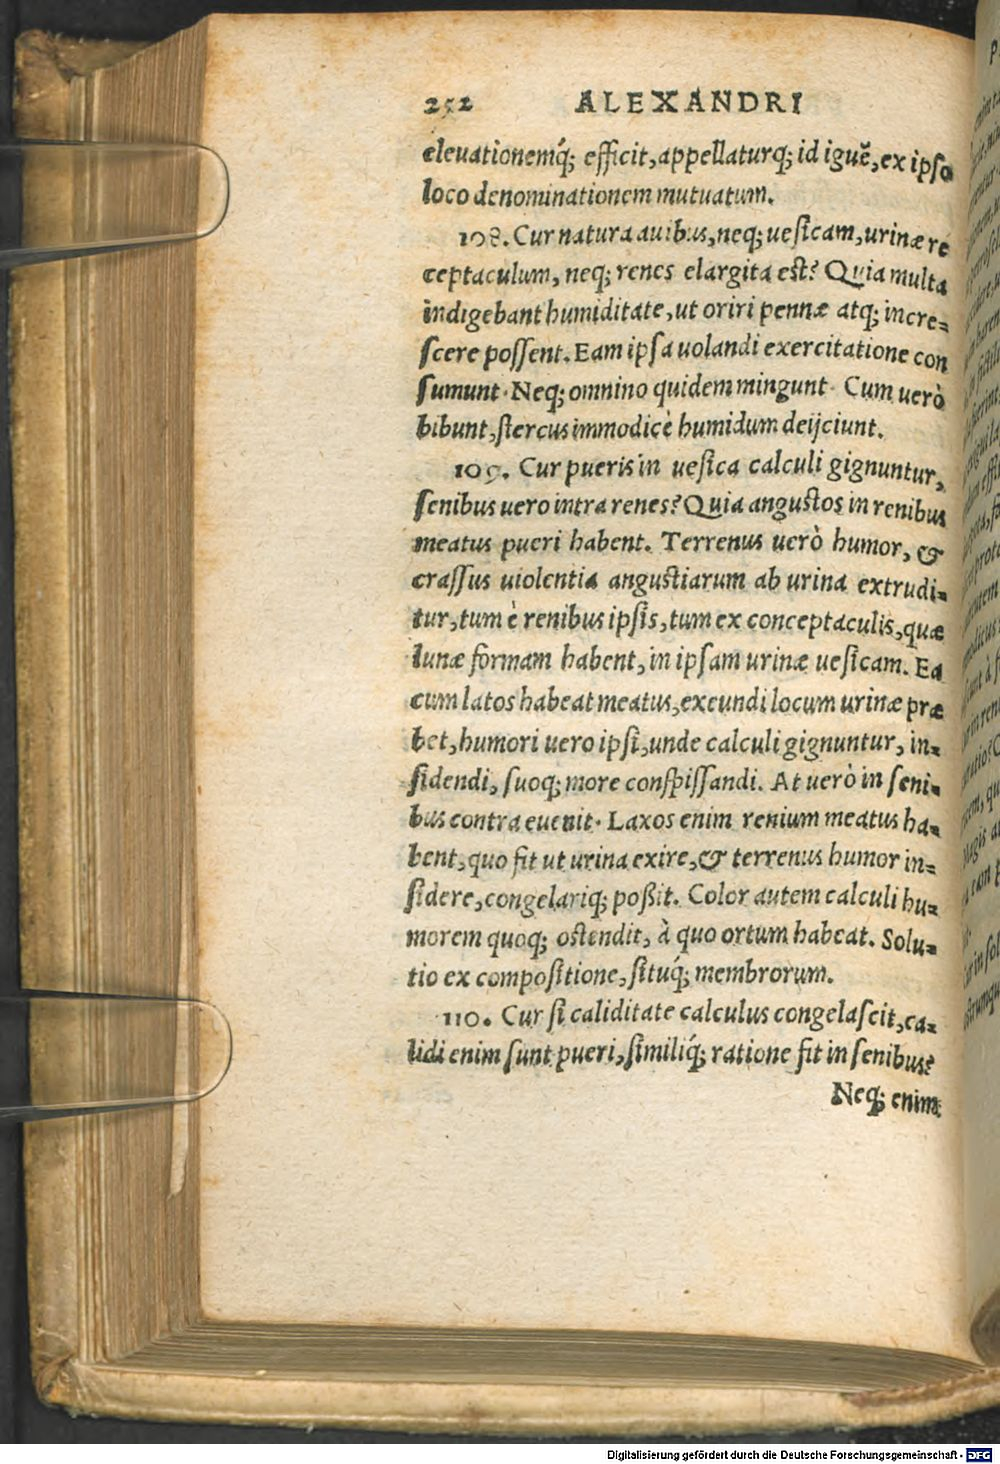 252 ALEXANDRI
eleuationemq́; efficit, appellaturq; id iguẽ, ex ipso
loco denominationem mutuatum.
108. Cur natura auibus, neq; uesicam, urinæ re
ceptaculum, neq; renes elargita est? Quia multa
indigebant humiditate, ut oriri pennæ atq; incre=
scere possent. Eam ipsa uolandi exercitatione con
sumunt. Neq; omnino quidem mingunt. Cum uerò
bibunt, stercus immodicè humidum deijciunt.
109. Cur pueris in uesica calculi gignuntur,
senibus uero intra renes? Quia angustos in renibus
meatus pueri habent. Terrenus uerò humor, &
crassus uiolentia angustiarum ab urina extrudi=
tur, tum è renibus ipsis, tum ex conceptaculis, quæ
lunæ formam habent, in ipsam urinæ uesicam. Ea
cum latos habeat meatus, exeundi locum urinæ præ
bet, humori uero ipsi, unde calculi gignuntur, in=
sidendi, suoq; more conspissandi. At uerò in seni=
bus contra euenit. Laxos enim renium meatus ha=
bent, quo fit ut urina exire, & terrenus humor in=
sidere, congelariq; poßit. Color autem calculi hu=
morem quoq; ostendit, à quo ortum habeat. Solu=
tio ex compositione, situq́; membrorum.
110. Cur si caliditate calculus congelascit, ca=
lidi enim sunt pueri, similiq́; ratione fit in senibus?
Neq; enim
Digitalisierung gefördert durch die Deutsche Forschungsgemeinschaft - DFG